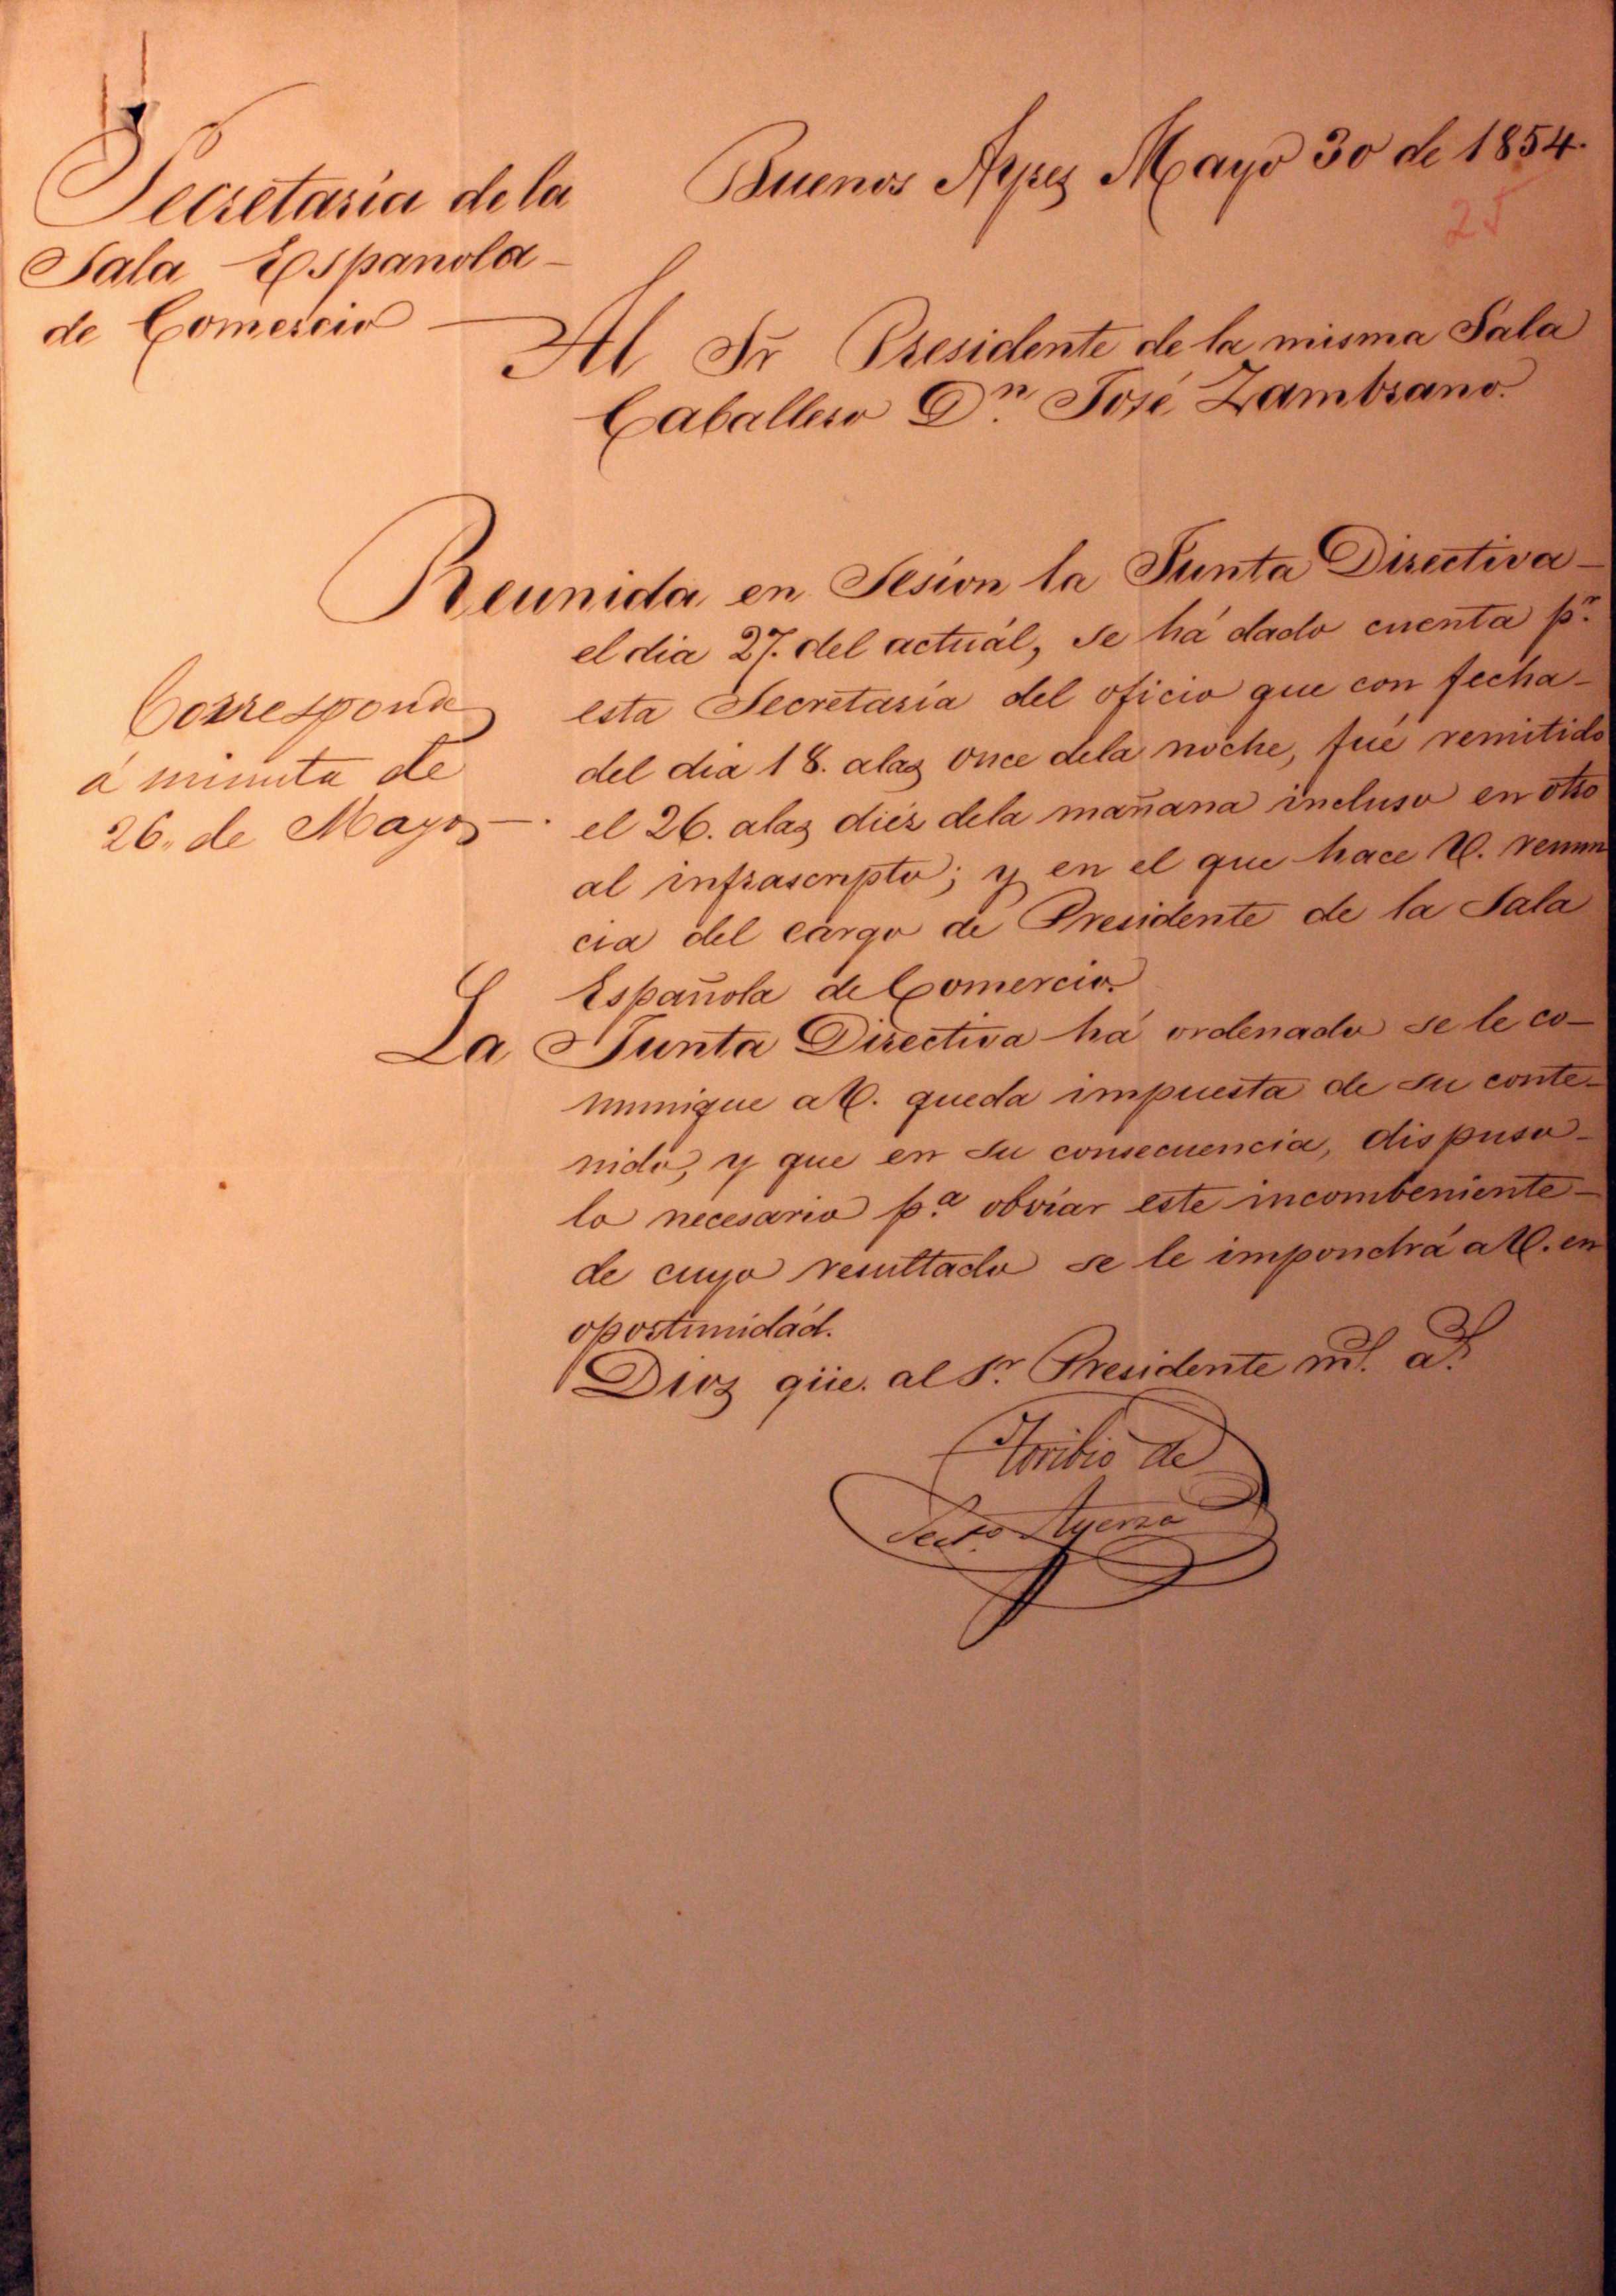 Secretaria de la
Sala Espanola
de Comercio
Buenos Ayres Mayo 30 de 1854.
25
Al Sr Presidente de la misma Sala
Caballero Dn. José Zambrano.
Reunida en Sesion la Junta Directiva
el dia 27. del actuál, se há dado cuenta pr.
esta Secretaría del oficio que con fecha
del dia 18. alas once dela noche, fué remitido
el 26. alas diéz dela mañana incluso en otro
al infrascripto; y en el que hace V. renun
cia del cargo de Presidente de la Sala
Española de Comercio.
Corresponde
á minuta de
26. de Mayo
La Junta Directiva há ordenado se le co-
munique a V. queda impuesta de su conte-
nido, y que en su consecuencia, dispuso
lo necesario pa. obviar este incombeniente
de cuyo resultado se le impondrá a V. en
oportunidád.
Dios güe. al Sr. Presidente ms. as.
Toribio de
Ayerza
Secto.